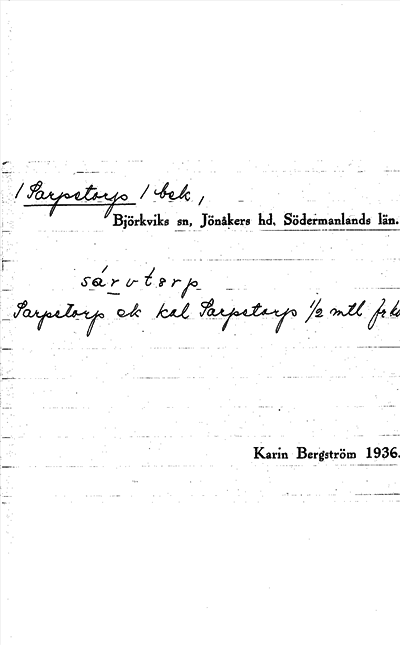 / Sarpstorp / bek,
Björkviks sn, Jönåkers hd, Södermanlands län.
Sarpstorp ek kal Sarpstorp 1/2 mtl frk
Karin Bergström 1936.